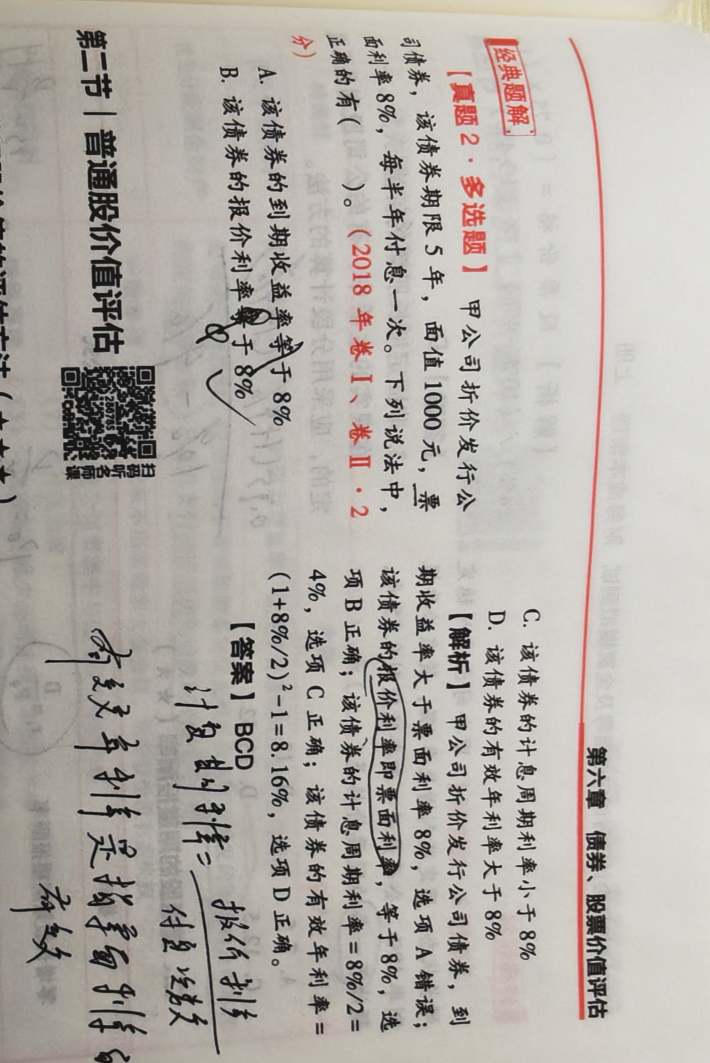 第六章 债券、股票价值评估
经典题解
【真题2·多选题】 甲公司折价发行公
司债券，该债券期限5年，面值1000元，票
面利率8%，每半年付息一次。下列说法中，
正确的有（ ）。（2018年卷Ⅰ、卷Ⅱ·2
分）
A. 该债券的到期收益率等于8%
B. 该债券的报价利率等于8%
C. 该债券的计息周期利率小于8%
D. 该债券的有效年利率大于8%
【解析】 甲公司折价发行公司债券，到
期收益率大于票面利率8%，选项A错误；
该债券的报价利率即票面利率，等于8%，选
项B正确；该债券的计息周期利率=8%/2=
4%，选项C正确；该债券的有效年利率=
(1+8%/2)²-1=8.16%，选项D正确。
【答案】 BCD
计息期利率=报价利率
付息次数
有效年利率是指票面利率的
有效
第二节 | 普通股价值评估
扫码听名师课